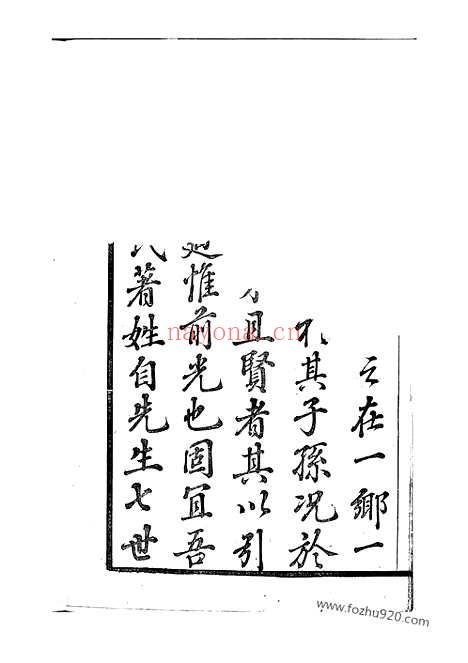 之在一鄉一
其子孫况於
且賢者其以引
惟前光也固冝吾
氏著姓自先生七世
nayona.cn
www.fozhu920.com